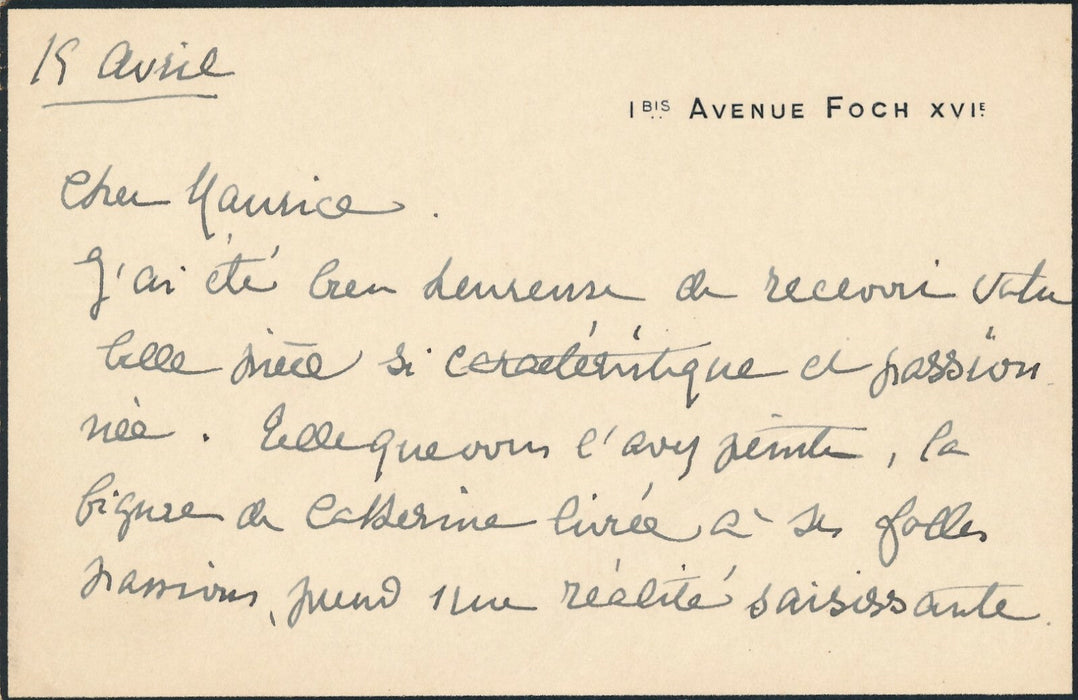 15 Avril
1 BIS AVENUE FOCH XVIE
Cher Maurice.
J'ai été bien heureuse de recevoir votre
belle pièce si caractéristique et passion
née. Telle que vous l'avez peinte, la
figure de Catherine livrée à ses folles
passions, prend une réalité saisissante.